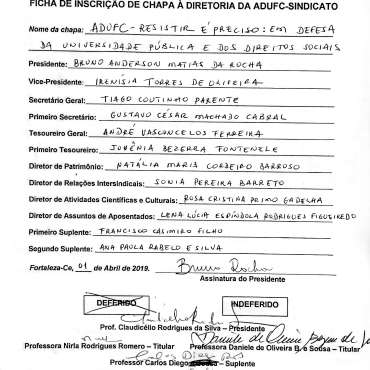 FICHA DE INSCRIÇÃO DE CHAPA À DIRETORIA DA ADUFC-SINDICATO
Nome da chapa: ADUFC - RESISTIR É PRECISO: EM DEFESA
DA UNIVERSIDADE PÚBLICA E DOS DIREITOS SOCIAIS
Presidente: BRUNO ANDERSON MATIAS DA ROCHA
Vice-Presidente: IRENÍSIA TORRES DE OLIVEIRA
Secretário Geral: TIAGO COUTINHO PARENTE
Primeiro Secretário: GUSTAVO CÉSAR MACHADO CABRAL
Tesoureiro Geral: ANDRÉ VASCONCELOS FERREIRA
Primeiro Tesoureiro: BEZERRA FONTENELE
Diretor de Patrimônio: NATÁLIA MARIA CORDEIRO BARROSO
Diretor de Relações Intersindicais: SONIA PEREIRA BARRETO
Diretor de Atividades Científicas e Culturais: ROSA CRISTINA PRIMO GADELHA
Diretor de Assuntos de Aposentados: LENA LÚCIA ESPÍNDOLA RODRIGUES FIGUEIREDO
Primeiro Suplente: FRANCISCO CASIMIRO FILHO
Segundo Suplente: ANA PAULA RABELO E SILVA
Fortaleza-Ce, 01 de Abril de 2019.
Bruno Rocha
Assinatura do Presidente
DEFERIDO INDEFERIDO
Prof. Claudicélio Rodrigues da Silva – Presidente
Professora Nirla Rodrigues Romero – Titular Professora Daniele de Oliveira B. e Sousa – Titular
Professor Carlos Diego – Suplente